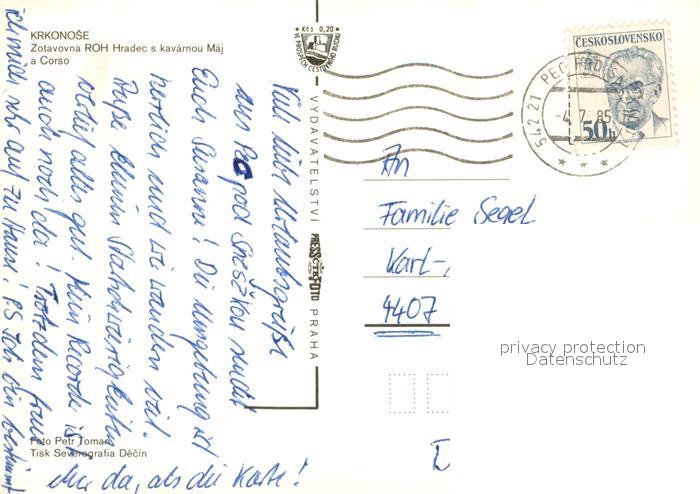 KRKONOŠE
Zotavovna ROH Hradec s kavárnou Máj
a Corso
Kčs 0,20
VE PROSPĚCH CESTOVNÍHO RUCHU
ČESKOSLOVENSKO
50h
542 21 PEC POD
-4.7.85
Viele liebe Urlaubsgrüße
aus Pec pod Sněžkou sendet
Euch Susanne! Die Umgebung ist
herrlich und wir wandern viel.
Bis auf kleine Startschwierigkeiten
alles gut. Mein Ricardo ist
auch noch da! Trotzdem freue
ich mich sehr auf zu Hause! PS Ich bin bestimmt
eher da, als die Karte!
VYDAVATELSTVÍ PRESSFOTO PRAHA
An
Familie Segel
Karl-,
4407
privacy protection
Datenschutz
Foto Petr Toman
Tisk Severografia Děčín